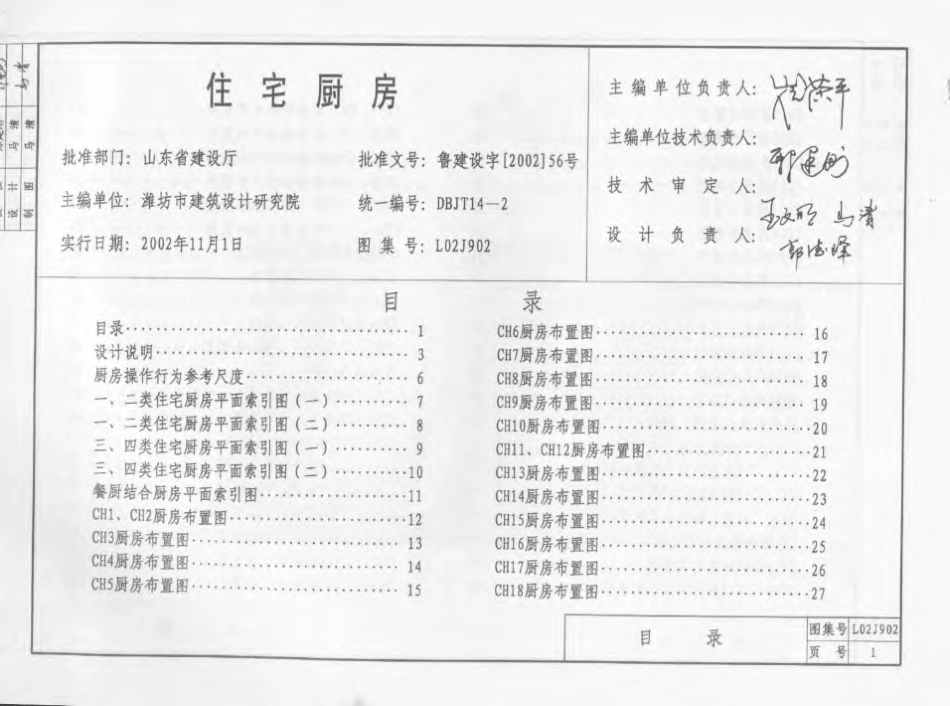 住宅厨房
批准部门：山东省建设厅 批准文号：鲁建设字[2002]56号
主编单位：潍坊市建筑设计研究院 统一编号：DBJT14—2
实行日期：2002年11月1日 图集号：L02J902
主编单位负责人：
主编单位技术负责人：
技术审定人：
设计负责人：
目录
目录 1
设计说明 3
厨房操作行为参考尺度 6
一、二类住宅厨房平面索引图（一） 7
一、二类住宅厨房平面索引图（二） 8
三、四类住宅厨房平面索引图（一） 9
三、四类住宅厨房平面索引图（二） 10
餐厨结合厨房平面索引图 11
CH1、CH2厨房布置图 12
CH3厨房布置图 13
CH4厨房布置图 14
CH5厨房布置图 15
CH6厨房布置图 16
CH7厨房布置图 17
CH8厨房布置图 18
CH9厨房布置图 19
CH10厨房布置图 20
CH11、CH12厨房布置图 21
CH13厨房布置图 22
CH14厨房布置图 23
CH15厨房布置图 24
CH16厨房布置图 25
CH17厨房布置图 26
CH18厨房布置图 27
目录
图集号 L02J902
页号 1
设计 马清
制图 马清